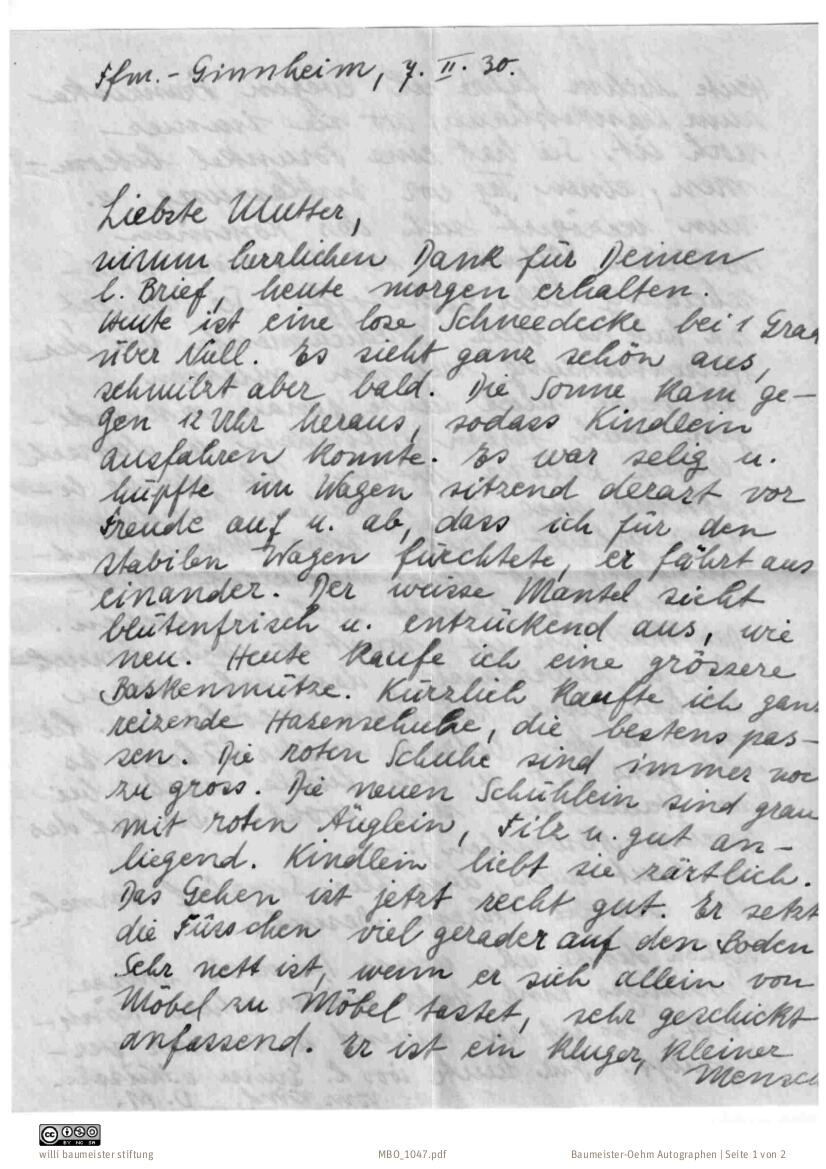 Ffm. - Ginnheim, 7. II. 30.
Liebste Mutter,
nimm herzlichen Dank für Deinen
l. Brief, heute morgen erhalten.
Heute ist eine lose Schneedecke bei 1 Grad
über Null. Es sieht ganz schön aus,
schmilzt aber bald. Die Sonne kam ge-
gen 12 Uhr heraus, sodass Kindlein
ausfahren konnte. Es war selig u.
hüpfte im Wagen sitzend derart vor
Freude auf u. ab, dass ich für den
stabilen Wagen fürchtete, er fährt aus
einander. Der weisse Mantel sieht
blütenfrisch u. entzückend aus, wie
neu. Heute kaufe ich eine grössere
Baskenmütze. Kürzlich kaufte ich ganz
reizende Hasenschuhe, die bestens pas-
sen. Die roten Schuhe sind immer noc
zu gross. Die neuen Schühlein sind grau
mit roten Äuglein, Filz u. gut an-
liegend. Kindlein liebt sie zärtlich.
Das Gehen ist jetzt recht gut. Er setzt
die Füsschen viel gerader auf den Boden
Sehr nett ist, wenn er sich allein von
Möbel zu Möbel tastet, sehr geschickt
anfassend. Er ist ein kluger, kleiner
Mensc
CC BY NC SA
willi baumeister stiftung MBO_1047.pdf Baumeister-Oehm Autographen | Seite 1 von 2